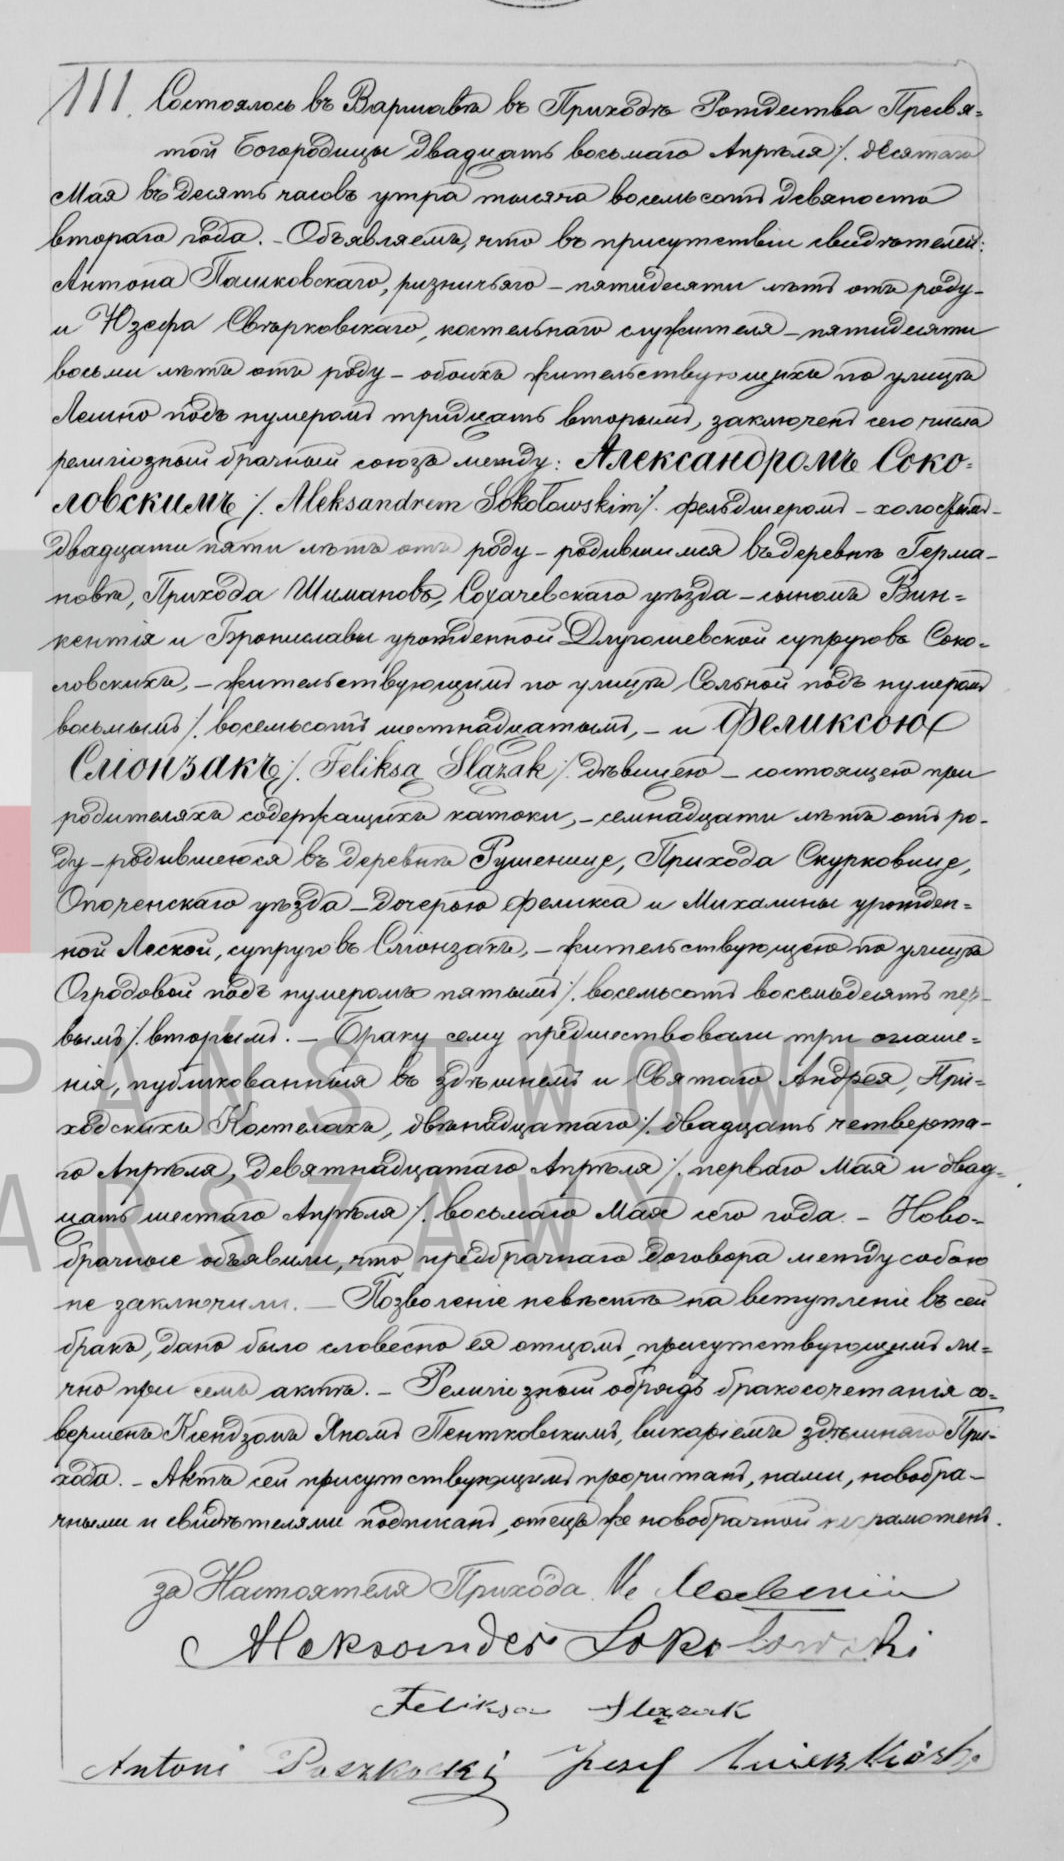 111. Состоялось въ Варшавѣ въ Приходѣ Рождества Пресвя=
той Богородицы двадцать восьмаго Апрѣля /. десятаго
Мая въ десять часовъ утра тысяча восемьсотъ девяносто
втораго года. – Объявляемъ, что въ присутствіи свидѣтелей:
Антона Пашковскаго, ризничьяго – пятидесяти лѣтъ отъ роду –
и Юзефа Свѣрковскаго, костельнаго служителя – пятидесяти
восьми лѣтъ отъ роду – обоихъ жительствующихъ по улицѣ
Лешно подъ нумеромъ тридцать вторымъ, заключенъ сего числа
религіозный брачный союзъ между: Александромъ Соко=
ловскимъ /. Aleksandrem Sokołowskim /. фельдшеромъ – холостымъ –
двадцати пяти лѣтъ отъ роду – родившимся въ деревнѣ Герма–
новѣ, Прихода Шимановъ, Сохачевскаго уѣзда – сыномъ Вин=
кентія и Брониславы урожденной Длугошевской супруговъ Соко=
ловскихъ, – жительствующимъ по улицѣ Сольной подъ нумеромъ
восьмымъ /. восемьсотъ шестнадцатымъ, – и Феликсою
Сліонзакъ /. Feliksą Ślązak /. дѣвицею – состоящею при
родителяхъ содержащихъ катоки, – семнадцати лѣтъ отъ ро–
ду – родившеюся въ деревнѣ Рушенице, Прихода Скурковице,
Опоченскаго уѣзда – дочерью Феликса и Михалины урожден=
ной Леской, супруговъ Сліонзакъ, – жительствующею по улицѣ
Огродовой подъ нумеромъ пятымъ /. восемьсотъ восемьдесятъ пер–
вымъ /. вторымъ. – Браку сему предшествовали три оглаше=
нія, публикованныя въ здѣшнемъ и Святаго Андрея, При=
ходскихъ Костелахъ, двѣнадцатаго /. двадцать четверта–
го Апрѣля, девятнадцатаго Апрѣля /. перваго Мая и двад=
цать шестаго Апрѣля /. восьмаго Мая сего года. – Ново=
брачные объявили, что предбрачнаго договора между собою
не заключили. – Позволеніе невѣстѣ на вступленіе въ сей
бракъ, дано было словесно ея отцомъ, присутствующимъ ли=
чно при семъ актѣ. – Религіозный обрядъ бракосочетанія со=
вершенъ Ксендзомъ Яномъ Пентковскимъ, викаріемъ здѣшняго При=
хода. – Актъ сей присутствующимъ прочитанъ, нами, новобра–
чными и свидѣтелями подписанъ, отецъ же новобрачной неграмотенъ.
за Настоятеля Прихода
Aleksander Sokołowski
Feliksa Ślązak
Antoni Paszkowski Józef
PAŃSTWOWE
WARSZAWY